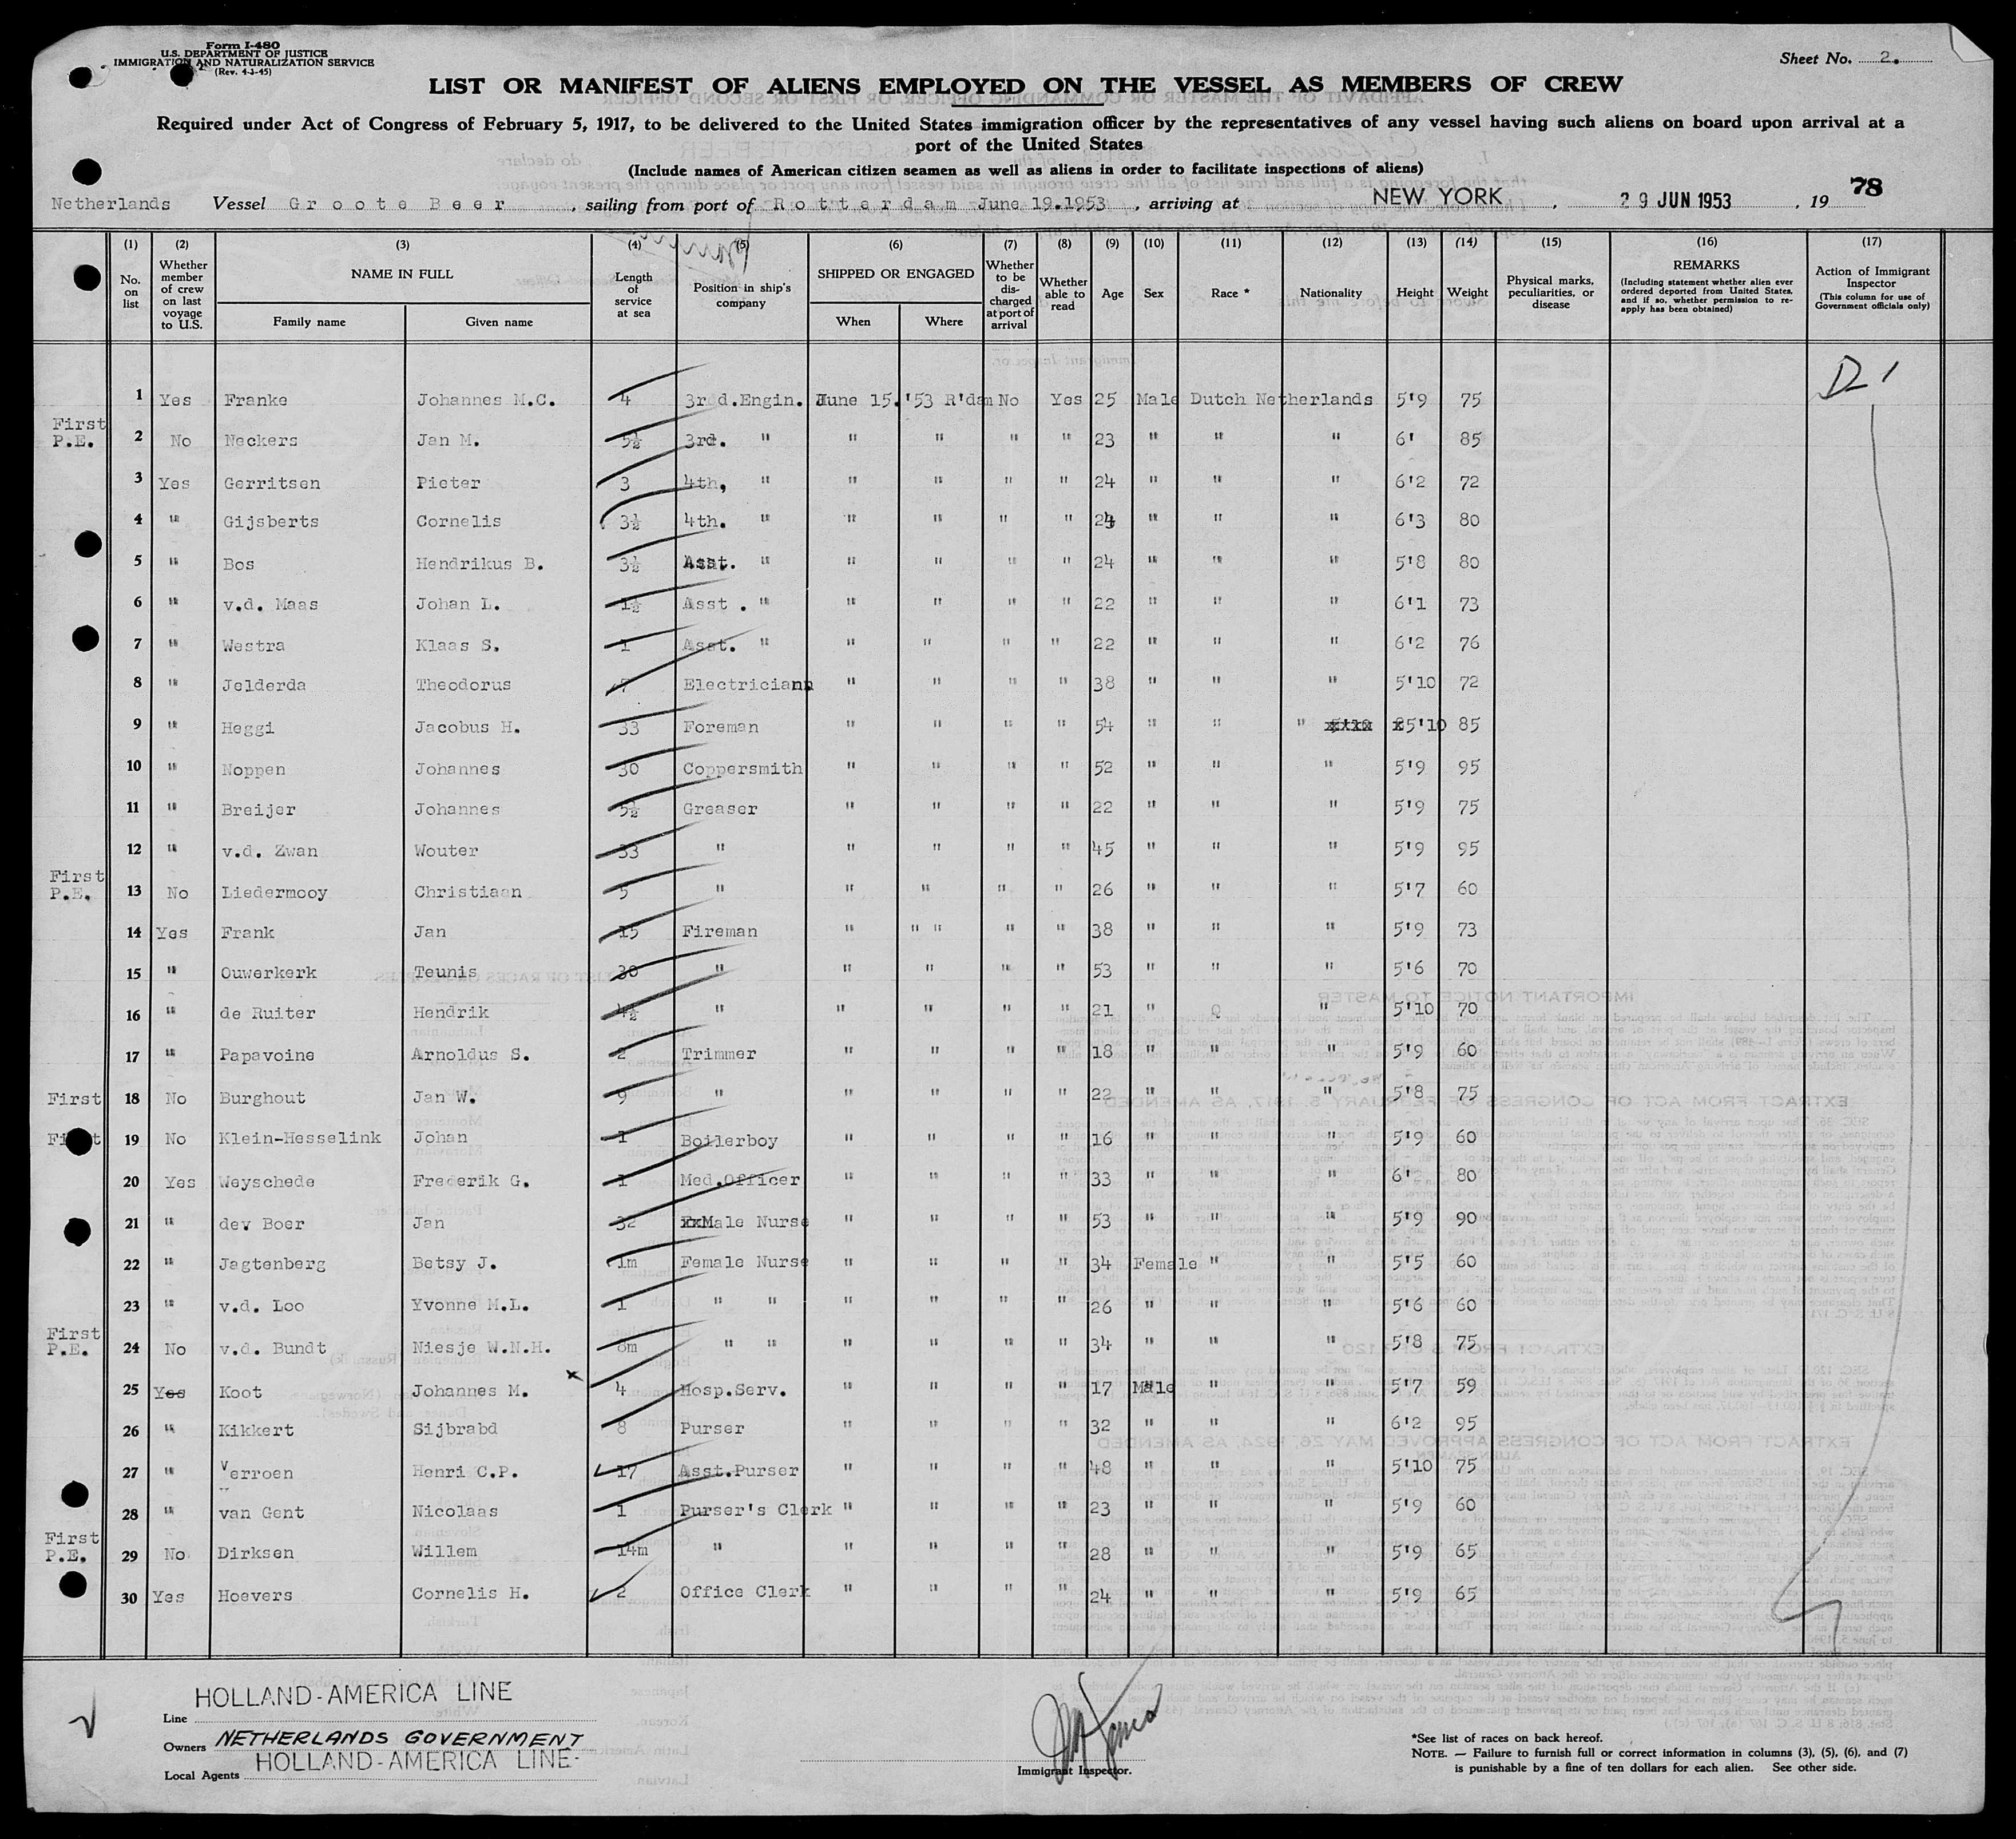 Form I-480
U.S. DEPARTMENT OF JUSTICE
IMMIGRATION AND NATURALIZATION SERVICE
(Rev. 4-3-45)
Sheet No. 2.
LIST OR MANIFEST OF ALIENS EMPLOYED ON THE VESSEL AS MEMBERS OF CREW
Required under Act of Congress of February 5, 1917, to be delivered to the United States immigration officer by the representatives of any vessel having such aliens on board upon arrival at a
port of the United States
(Include names of American citizen seamen as well as aliens in order to facilitate inspections of aliens)
78
Netherlands Vessel Groote Beer, sailing from port of Rotterdam June 19.1953, arriving at NEW YORK, 29 JUN 1953, 19
(1) (2) (3) (4) (5) (6) (7) (8) (9) (10) (11) (12) (13) (14) (15) (16) (17)
No. on list
Whether member of crew on last voyage to U.S.
NAME IN FULL
Family name Given name
Length of service at sea
Position in ship's company
SHIPPED OR ENGAGED
When Where
Whether to be discharged at port of arrival
Whether able to read
Age Sex Race * Nationality Height Weight
Physical marks, peculiarities, or disease
REMARKS
(Including statement whether alien ever ordered deported from United States, and if so, whether permission to reapply has been obtained)
Action of Immigrant Inspector
(This column for use of Government officials only)
D-1
1 Yes Franke Johannes M.C. 4 3rd.Engin. June 15.'53 R'dam No Yes 25 Male Dutch Netherlands 5'9 75
First P.E. 2 No Neckers Jan M. 5½ 3rd. " " " " " 23 " " " 6' 85
3 Yes Gerritsen Pieter 3 4th, " " " " " 24 " " " 6'2 72
4 " Gijsberts Cornelis 3½ 4th. " " " " " 24 " " " 6'3 80
5 " Bos Hendrikus B. 3½ Asst. " " " " " 24 " " " 5'8 80
6 " v.d. Maas Johan L. 1½ Asst . " " " " " 22 " " " 6'1 73
7 " Westra Klaas S. 1 Asst. " " " " " 22 " " " 6'2 76
8 " Jelderda Theodorus 7 Electriciann " " " " 38 " " " 5'10 72
9 " Heggi Jacobus H. 33 Foreman " " " " 54 " " " 5'10 85
10 " Noppen Johannes 30 Coppersmith " " " " 52 " " " 5'9 95
11 " Breijer Johannes 5½ Greaser " " " " 22 " " " 5'9 75
12 " v.d. Zwan Wouter 33 " " " " " 45 " " " 5'9 95
First P.E. 13 No Liedermooy Christiaan 5 " " " " " 26 " " " 5'7 60
14 Yes Frank Jan 15 Fireman " " " " " 38 " " " 5'9 73
15 " Ouwerkerk Teunis 30 " " " " " 53 " " " 5'6 70
16 " de Ruiter Hendrik 4½ " " " " " 21 " Q " 5'10 70
17 " Papavoine Arnoldus S. 2 Trimmer " " " " 18 " " " 5'9 60
First 18 No Burghout Jan W. 9 " " " " " 22 " " " 5'8 75
First 19 No Klein-Hesselink Johan 1 Boilerboy " " " " 16 " " " 5'9 60
20 Yes Weyschede Frederik G. 1 Med.Officer " " " " 33 " " " 6'2 80
21 " dev Boer Jan 32 Male Nurse " " " " 53 " " " 5'9 90
22 " Jagtenberg Betsy J. 1m Female Nurse " " " " 34 Female " " 5'5 60
23 " v.d. Loo Yvonne M.L. 1 " " " " " " 26 " " " 5'6 60
First P.E. 24 No v.d. Bundt Niesje W.N.H. 8m " " " " " " 34 " " " 5'8 75
25 Yes Koot Johannes M. x 4 Hosp.Serv. " " " " 17 Male " " 5'7 59
26 " Kikkert Sijbrabd 8 Purser " " " " 32 " " " 6'2 95
27 " Verroen Henri C.P. 17 Asst.Purser " " " " 48 " " " 5'10 75
28 " van Gent Nicolaas 1 Purser's Clerk " " " " 23 " " " 5'9 60
First P.E. 29 No Dirksen Willem 14m " " " " " 28 " " " 5'9 65
30 Yes Hoevers Cornelis H. 2 Office Clerk " " " " 24 " " " 5'9 65
Line HOLLAND-AMERICA LINE
Owners NETHERLANDS GOVERNMENT
Local Agents HOLLAND-AMERICA LINE-
Immigrant Inspector.
*See list of races on back hereof.
NOTE. — Failure to furnish full or correct information in columns (3), (5), (6), and (7)
is punishable by a fine of ten dollars for each alien. See other side.